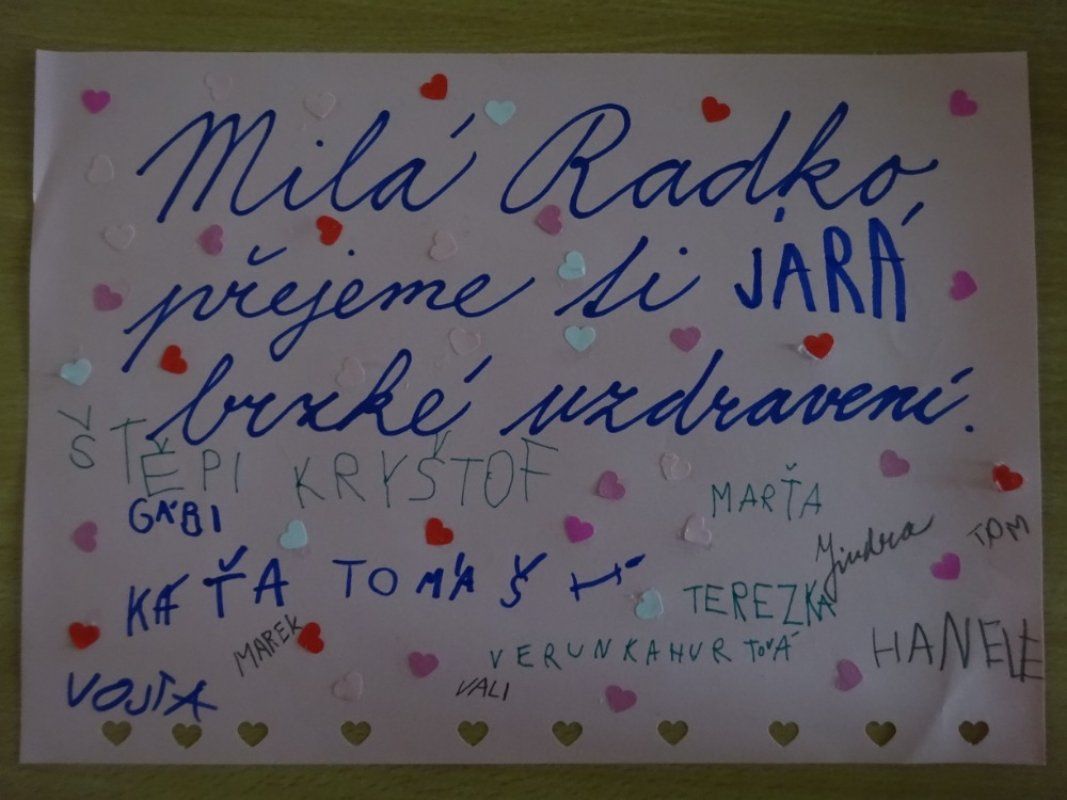 Milá Radko,
přejeme ti JARÁ
brzké uzdravení.
ŠTĚPI KRYŠTOF
GÁBI
MARŤA
Jindra
TOM
KÁŤA TOMÁŠ H
TEREZKA
MAREK
VERUNKAHURTOVÁ
HANELE
VOJTA
VALI